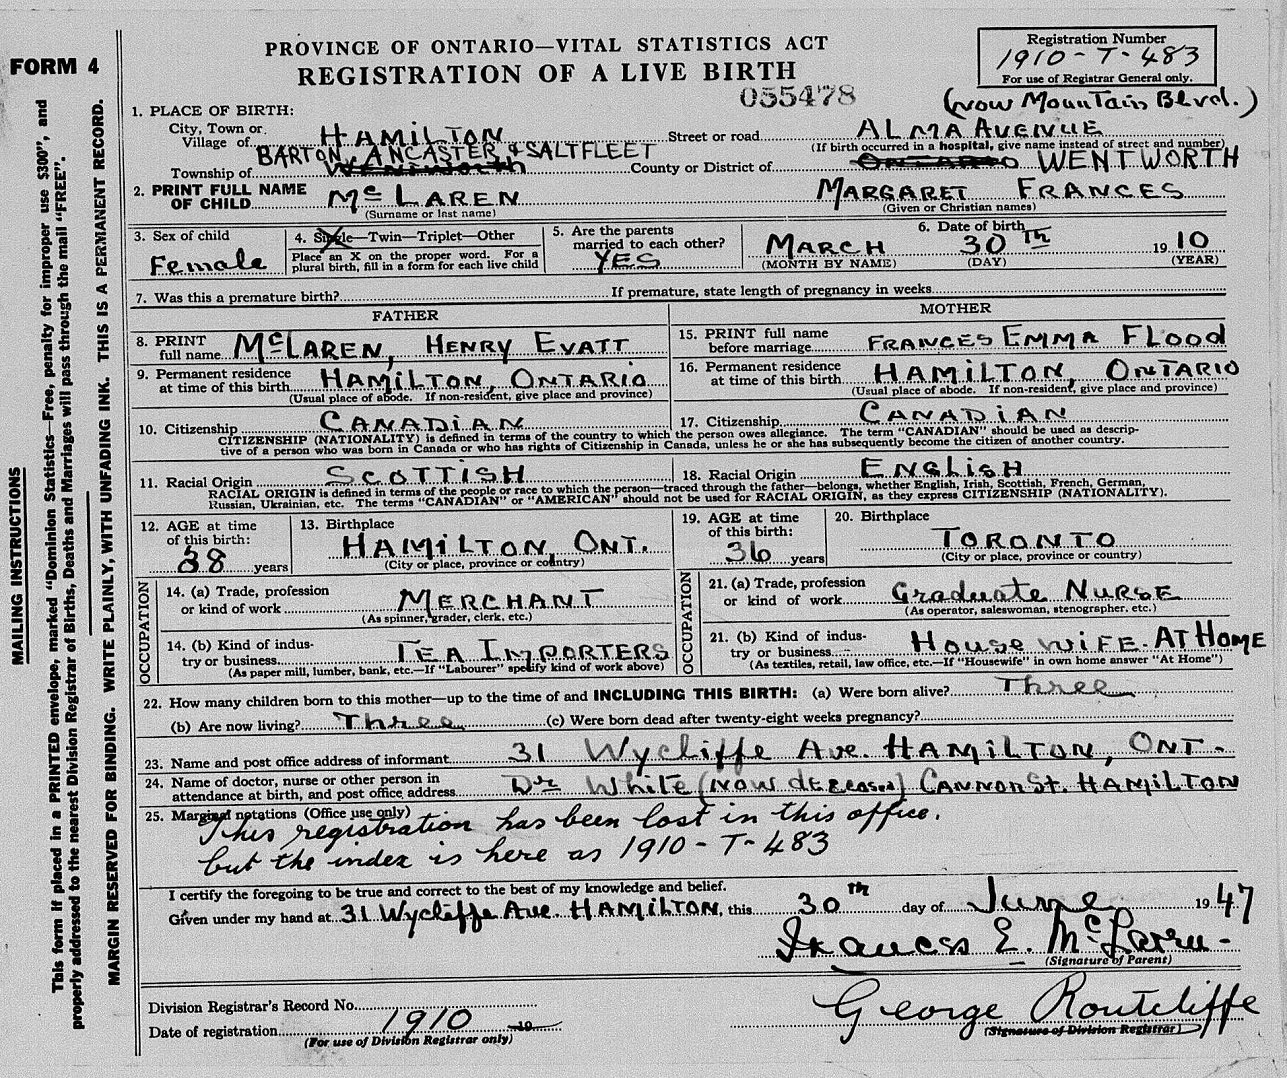 PROVINCE OF ONTARIO—VITAL STATISTICS ACT
REGISTRATION OF A LIVE BIRTH
055478
Registration Number
1910-T-483
For use of Registrar General only.
FORM 4
MAILING INSTRUCTIONS
This form if placed in a PRINTED envelope, marked "Dominion Statistics—Free, penalty for improper use $300", and
properly addressed to the nearest Division Registrar of Births, Deaths and Marriages will pass through the mail "FREE".
MARGIN RESERVED FOR BINDING. WRITE PLAINLY, WITH UNFADING INK. THIS IS A PERMANENT RECORD.
1. PLACE OF BIRTH:
(NOW MOUNTAIN BLVD.)
City, Town or Village of HAMILTON Street or road ALMA AVENUE
(If birth occurred in a hospital, give name instead of street and number)
BARTON, ANCASTER & SALTFLEET
Township of Wentworth County or District of ONTARIO WENTWORTH
2. PRINT FULL NAME OF CHILD McLAREN MARGARET FRANCES
(Surname or last name) (Given or Christian names)
3. Sex of child Female
4. Single—Twin—Triplet—Other
Place an X on the proper word. For a
plural birth, fill in a form for each live child
5. Are the parents married to each other? YES
6. Date of birth
MARCH 30TH 1910
(MONTH BY NAME) (DAY) (YEAR)
7. Was this a premature birth? If premature, state length of pregnancy in weeks
FATHER MOTHER
8. PRINT full name McLAREN, HENRY EVATT
15. PRINT full name before marriage FRANCES EMMA FLOOD
9. Permanent residence at time of this birth HAMILTON, ONTARIO
(Usual place of abode. If non-resident, give place and province)
16. Permanent residence at time of this birth HAMILTON, ONTARIO
(Usual place of abode. If non-resident, give place and province)
10. Citizenship CANADIAN 17. Citizenship CANADIAN
CITIZENSHIP (NATIONALITY) is defined in terms of the country to which the person owes allegiance. The term "CANADIAN" should be used as descrip-
tive of a person who was born in Canada or who has rights of Citizenship in Canada, unless he or she has subsequently become the citizen of another country.
11. Racial Origin SCOTTISH 18. Racial Origin ENGLISH
RACIAL ORIGIN is defined in terms of the people or race to which the person—traced through the father—belongs, whether English, Irish, Scottish, French, German,
Russian, Ukrainian, etc. The terms "CANADIAN" or "AMERICAN" should not be used for RACIAL ORIGIN, as they express CITIZENSHIP (NATIONALITY).
12. AGE at time of this birth: 38 years
13. Birthplace HAMILTON, ONT.
(City or place, province or country)
19. AGE at time of this birth: 36 years
20. Birthplace TORONTO
(City or place, province or country)
OCCUPATION
14. (a) Trade, profession or kind of work MERCHANT
(As spinner, grader, clerk, etc.)
14. (b) Kind of indus-
try or business TEA IMPORTERS
(As paper mill, lumber, bank, etc.—If "Labourer" specify kind of work above)
OCCUPATION
21. (a) Trade, profession or kind of work Graduate NURSE
(As operator, saleswoman, stenographer, etc.)
21. (b) Kind of indus-
try or business HOUSEWIFE. AT HOME
(As textiles, retail, law office, etc.—If "Housewife" in own home answer "At Home")
22. How many children born to this mother—up to the time of and INCLUDING THIS BIRTH: (a) Were born alive? Three
(b) Are now living? Three (c) Were born dead after twenty-eight weeks pregnancy?
23. Name and post office address of informant 31 Wycliffe Ave. HAMILTON, ONT.
24. Name of doctor, nurse or other person in
attendance at birth, and post office address Dr White (now deceased) CANNON St. HAMILTON
25. Marginal notations (Office use only)
This registration has been lost in this office.
but the index is here as 1910-T-483
I certify the foregoing to be true and correct to the best of my knowledge and belief.
Given under my hand at 31 Wycliffe Ave. HAMILTON, this 30th day of June 1947
Frances E. McLaren
(Signature of Parent)
Division Registrar's Record No.
Date of registration 1910 19
(For use of Division Registrar only)
George Routcliffe
(Signature of Division Registrar)